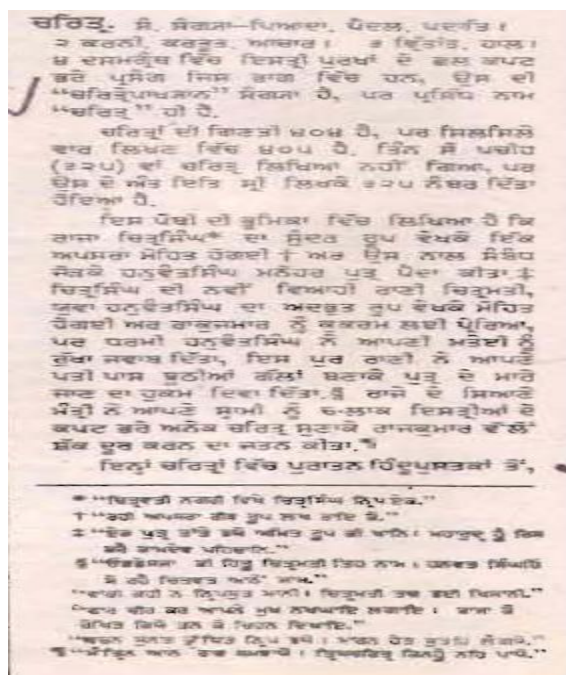 ਚਰਿਤ੍ਰ. ਸੰ. ਸੰਗਯਾ—ਪਿਆਦਾ. ਪੈਦਲ. ਪਦਾਤਿ।
੨ ਕਰਨੀ. ਕਰਤੂਤ. ਆਚਾਰ। ੩ ਵ੍ਰਿੱਤਾਂਤ. ਹਾਲ।
੪ ਦਸਮਗ੍ਰੰਥ ਵਿੱਚ ਇਸਤ੍ਰੀ ਪੁਰਖਾਂ ਦੇ ਛਲ ਕਪਟ
ਭਰੇ ਪ੍ਰਸੰਗ ਜਿਸ ਭਾਗ ਵਿੱਚ ਹਨ, ਉਸ ਦੀ
“ਚਰਿਤ੍ਰੋਪਾਖ੍ਯਾਨ” ਸੰਗਯਾ ਹੈ, ਪਰ ਪ੍ਰਸਿੱਧ ਨਾਮ
“ਚਰਿਤ੍ਰ” ਹੀ ਹੈ.
ਚਰਿਤ੍ਰਾਂ ਦੀ ਗਿਣਤੀ ੪੦੪ ਹੈ, ਪਰ ਸਿਲਸਿਲੇ
ਵਾਰ ਲਿਖਣ ਵਿੱਚ ੪੦੫ ਹੈ. ਤਿੰਨ ਸੌ ਪਚੀਹ
(੩੨੫) ਵਾਂ ਚਰਿਤ੍ਰ ਲਿਖਿਆ ਨਹੀਂ ਗਿਆ, ਪਰ
ਉਸ ਦੇ ਅੰਤ ਇਤਿ ਸ੍ਰੀ ਲਿਖਕੇ ੩੨੫ ਨੰਬਰ ਦਿੱਤਾ
ਹੋਇਆ ਹੈ.
ਇਸ ਪੋਥੀ ਦੀ ਭੂਮਿਕਾ ਵਿੱਚ ਲਿਖਿਆ ਹੈ ਕਿ
ਰਾਜਾ ਚਿਤ੍ਰਸਿੰਘ* ਦਾ ਸੁੰਦਰ ਰੂਪ ਵੇਖਕੇ ਇੱਕ
ਅਪਸਰਾ ਮੋਹਿਤ ਹੋਗਈ † ਅਰ ਉਸ ਨਾਲ ਸੰਬੰਧ
ਜੋੜਕੇ ਹਨੁਵੰਤਸਿੰਘ ਮਨੋਹਰ ਪੁਤ੍ਰ ਪੈਦਾ ਕੀਤਾ.‡
ਚਿਤ੍ਰਸਿੰਘ ਦੀ ਨਵੀਂ ਵਿਆਹੀ ਰਾਣੀ ਚਿਤ੍ਰਮਤੀ,
ਯੁਵਾ ਹਨੁਵੰਤਸਿੰਘ ਦਾ ਅਦਭੁਤ ਰੂਪ ਵੇਖਕੇ ਮੋਹਿਤ
ਹੋਗਈ ਅਰ ਰਾਜਕੁਮਾਰ ਨੂੰ ਕੁਕਰਮ ਲਈ ਪ੍ਰੇਰਿਆ,
ਪਰ ਧਰਮੀ ਹਨੁਵੰਤਸਿੰਘ ਨੇ ਆਪਣੀ ਮਤੇਈ ਨੂੰ
ਰੁੱਖਾ ਜਵਾਬ ਦਿੱਤਾ, ਇਸ ਪੁਰ ਰਾਣੀ ਨੇ ਆਪਣੇ
ਪਤੀ ਪਾਸ ਝੂਠੀਆਂ ਗੱਲਾਂ ਬਣਾਕੇ ਪੁਤ੍ਰ ਦੇ ਮਾਰੇ
ਜਾਣ ਦਾ ਹੁਕਮ ਦਿਵਾ ਦਿੱਤਾ.§ ਰਾਜੇ ਦੇ ਸਿਆਣੇ
ਮੰਤ੍ਰੀ ਨੇ ਆਪਣੇ ਸ੍ਵਾਮੀ ਨੂੰ ਚਲਾਕ ਇਸਤ੍ਰੀਆਂ ਦੇ
ਕਪਟ ਭਰੇ ਅਨੇਕ ਚਰਿਤ੍ਰ ਸੁਣਾਕੇ ਰਾਜਕੁਮਾਰ ਵੱਲੋਂ
ਸ਼ੱਕ ਦੂਰ ਕਰਨ ਦਾ ਜਤਨ ਕੀਤਾ.¶
ਇਨ੍ਹਾਂ ਚਰਿਤ੍ਰਾਂ ਵਿੱਚ ਪੁਰਾਤਨ ਹਿੰਦੂਪੁਸਤਕਾਂ ਤੋਂ,
* “ਚਿਤ੍ਰਵਤੀ ਨਗਰੀ ਵਿਖੇ ਚਿਤ੍ਰਸਿੰਘ ਨ੍ਰਿਪ ਏਕ.”
† “ਰਹੀ ਅਪਸਰਾ ਰੀਝ ਰੂਪ ਲਖ ਰਾਇ ਕੋ.”
‡ “ਏਕ ਪੁਤ੍ਰ ਤਾਂਤੇ ਭਯੋ ਅਮਿਤ ਰੂਪ ਕੀ ਖਾਨਿ। ਮਹਾਰੁਦ੍ਰ ਹੂੰ ਰਿਸ
ਕਰੈ ਕਾਮਦੇਵ ਪਹਿਚਾਨਿ.”
ਕੀ ਹਿਤੂ ਚਿਤ੍ਰਮਤੀ ਤਿਹ ਨਾਮ। ਹਨਵਤ ਸਿੰਘਹਿ
ਸੋ ਰਹੈ ਚਿਤਵਤ ਆਠੋ ਜਾਮ.”
ਕਹੀ ਨ ਨ੍ਰਿਪਸੁਤ ਮਾਨੀ। ਚਿਤ੍ਰਮਤੀ ਤਬ ਭਈ ਖਿਸਾਨੀ.”
ਚੀਰ ਕਰ ਆਪਨੇ ਮੁਖ ਨਖਘਾਇ ਲਗਾਇ। ਰਾਜਾ ਕੋ
ਰੋਖਿਤ ਕਿਯੋ ਤਨ ਕੋ ਚਿਹਨ ਦਿਖਾਇ.”
“ਬਚਨ ਸੁਨਤ ਕ੍ਰੋਧਿਤ ਨ੍ਰਿਪ ਭਯੋ। ਮਾਰਨ ਹੇਤ ਸੁਤਹਿ ਲੈਗਯੋ.”
¶ “ਮੰਤ੍ਰਿਨ ਆਨ ਰਾਵ ਸਮਝਾਯੋ। ਤ੍ਰਿਯਚਰਿਤ੍ਰ ਕਿਨਹੂੰ ਨਹਿ ਪਾਯੋ.”